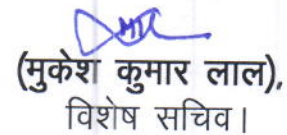 (मुकेश कुमार लाल),
विशेष सचिव।